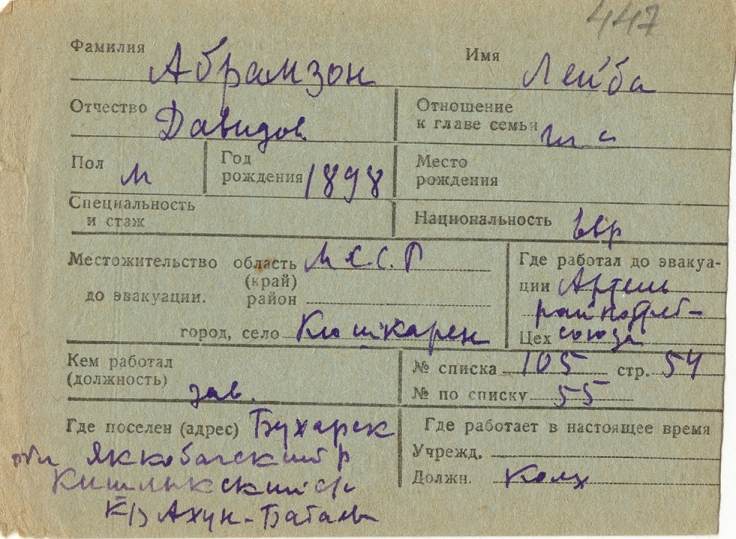 447
Фамилия Абрамзон Имя Лейба
Отчество Давидов Отношение к главе семьи
Пол м Год рождения 1898 Место рождения
Специальность и стаж Национальность евр
Местожительство область М.С.С.Р Где работал до эвакуа-
(край) ции Артель
до эвакуации. район райпотреб-
город, село Кошкарен Цех союза
Кем работал (должность) зав. № списка 105 стр. 54
№ по списку 55
Где поселен (адрес) Бухарск Где работает в настоящее время
обл Яккобагский р Учрежд.
с/с Должн. Колх
к/з Ахун-Бабаев